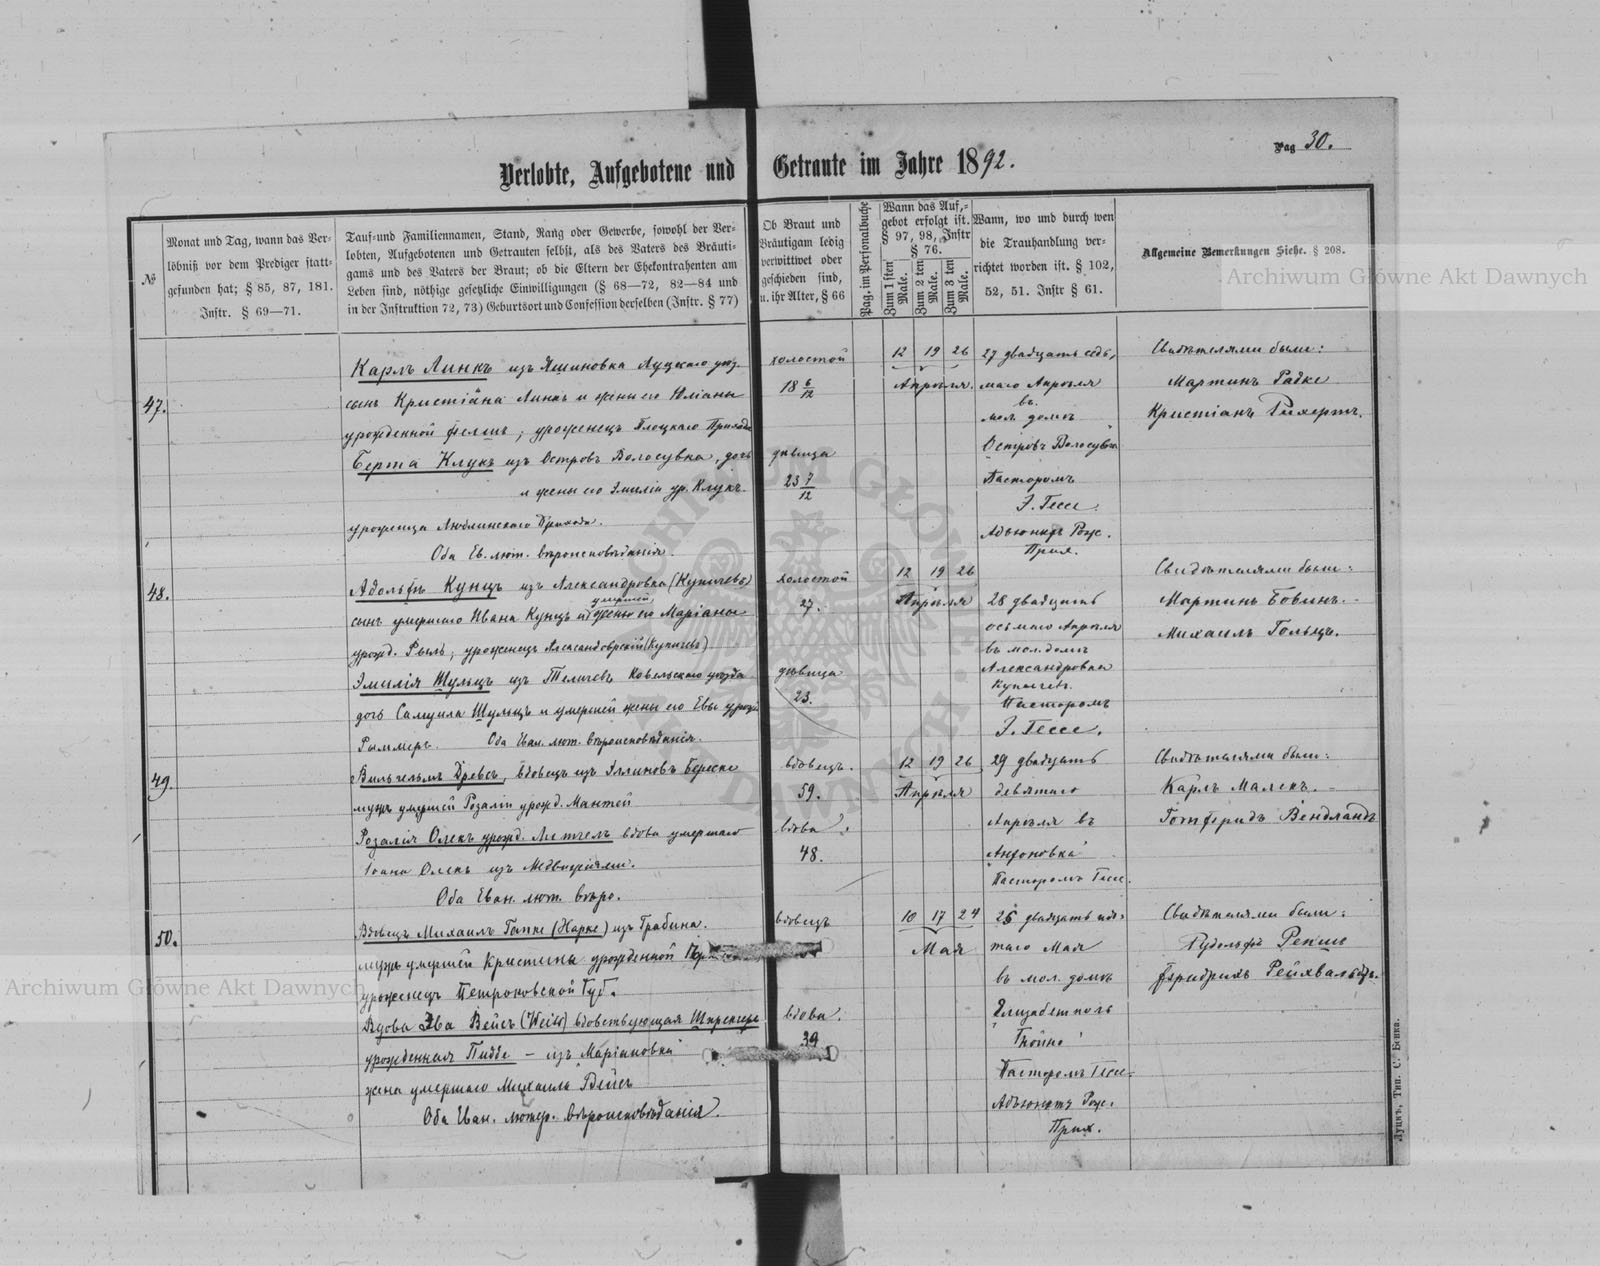 Pag 30.
Verlobte, Aufgebotene und Getraute im Jahre 1892.
№
Monat und Tag, wann das Ver-
löbniß vor dem Prediger statt-
gefunden hat; § 85, 87, 181.
Instr. § 69—71.
Tauf- und Familiennamen, Stand, Rang oder Gewerbe, sowohl der Ver-
lobten, Aufgebotenen und Getrauten selbst, als des Vaters des Bräuti-
gams und des Vaters der Braut; ob die Eltern der Ehekontrahenten am
Leben sind, nöthige gesetzliche Einwilligungen (§ 68—72, 82—84 und
in der Instruktion 72, 73) Geburtsort und Confession derselben (Instr. § 77)
Ob Braut und
Bräutigam ledig
verwittwet oder
geschieden sind,
u. ihr Alter, § 66
Pag. im Personalbuche
Wann das Auf-
gebot erfolgt ist.
§ 97, 98, Instr
§ 76.
Zum 1 sten Male.
Zum 2 ten Male.
Zum 3 ten Male.
Wann, wo und durch wen
die Trauhandlung ver-
richtet worden ist. § 102,
52, 51. Instr § 61.
Allgemeine Bemerkungen Siehe. § 208.
47.
Карлъ Линкъ изъ Яшиновка Луцкаго уѣз.
сынъ Кристіана Линкъ и жены его Юліаны
урожденной ; уроженецъ Плоцкаго Прихода
Берта Клукъ изъ Островъ Волосувка, дочь
и жены его Эмиліи ур. Клукъ.
уроженца Люблинскаго Прихода.
Оба Ев. лют. вѣроисповѣданія.
холостой
18 6/12
дѣвица
23 7/12
12 19 26
Апрѣля.
27 двадцать седь-
маго Апрѣля
въ
мол. домѣ
Островъ Волосувка
Пасторомъ
Э. Гессе.
Адъюнктъ Рож.
Прих.
Свидѣтелями были:
Мартинъ Радке
Кристіанъ Рихертъ.
48.
Адольфъ Кунцъ изъ Александровка (Купичевъ)
сынъ умершаго Ивана Кунцъ и умершей жены его Маріаны
урожд. Рыль, уроженецъ Александровскій (Купичевъ)
Эмилія Шульцъ изъ Ковельскаго уѣзда
дочь Самуила Шульцъ и умершей жены его Евы урожд.
Рыммеръ. Оба Еван. лют. вѣроисповѣданія.
холостой
27.
дѣвица
23.
12 19 26
Апрѣля
28 двадцать
осьмаго Апрѣля
въ мол. домѣ
Александровка
Купичевъ.
Пасторомъ
Э. Гессе.
Свидѣтелями были:
Мартинъ Бовинъ.
Михаилъ Гольцъ.
49.
Вильгельмъ Древсъ, вдовецъ изъ Эллиновъ
мужъ умершей Розаліи урожд. Мантей
Розалія Олекъ урожд. Лителъ вдова умершаго
Іоана Олекъ изъ
Оба Еван. лют. вѣро.
вдовецъ.
59.
вдова.
48.
12 19 26
Апрѣля
29 двадцать
девятаго
Апрѣля въ
Антоновка
Пасторомъ Гессе.
Свидѣтелями были:
Карлъ Малекъ.
Готфридъ Вендландъ
50.
Вдовецъ Михаилъ Гапке (Харке) изъ Грабина.
мужъ умершей Кристины урожденной
уроженецъ Петроковской Губ.
Вдова Эва Вейсъ (Weiß) вдовствующая
урожденная — изъ Маріановка
жена умершаго Михаила Вейсъ
Оба Еван. лютер. вѣроисповѣданія.
вдовецъ
вдова.
39
10 17 24
Мая
25 двадцать пя-
таго Мая
въ мол. домѣ
Елизабетполь
Пасторомъ Гессе.
Адъюнктъ Рож.
Прих.
Свидѣтелями были:
Рудольфъ
Фридрихъ Рейхвальдъ.
Луцкъ, Тип. С. Бонка.
Archiwum Główne Akt Dawnych
Archiwum Główne Akt Dawnych
ARCHIWUM GŁÓWNE AKT DAWNYCH